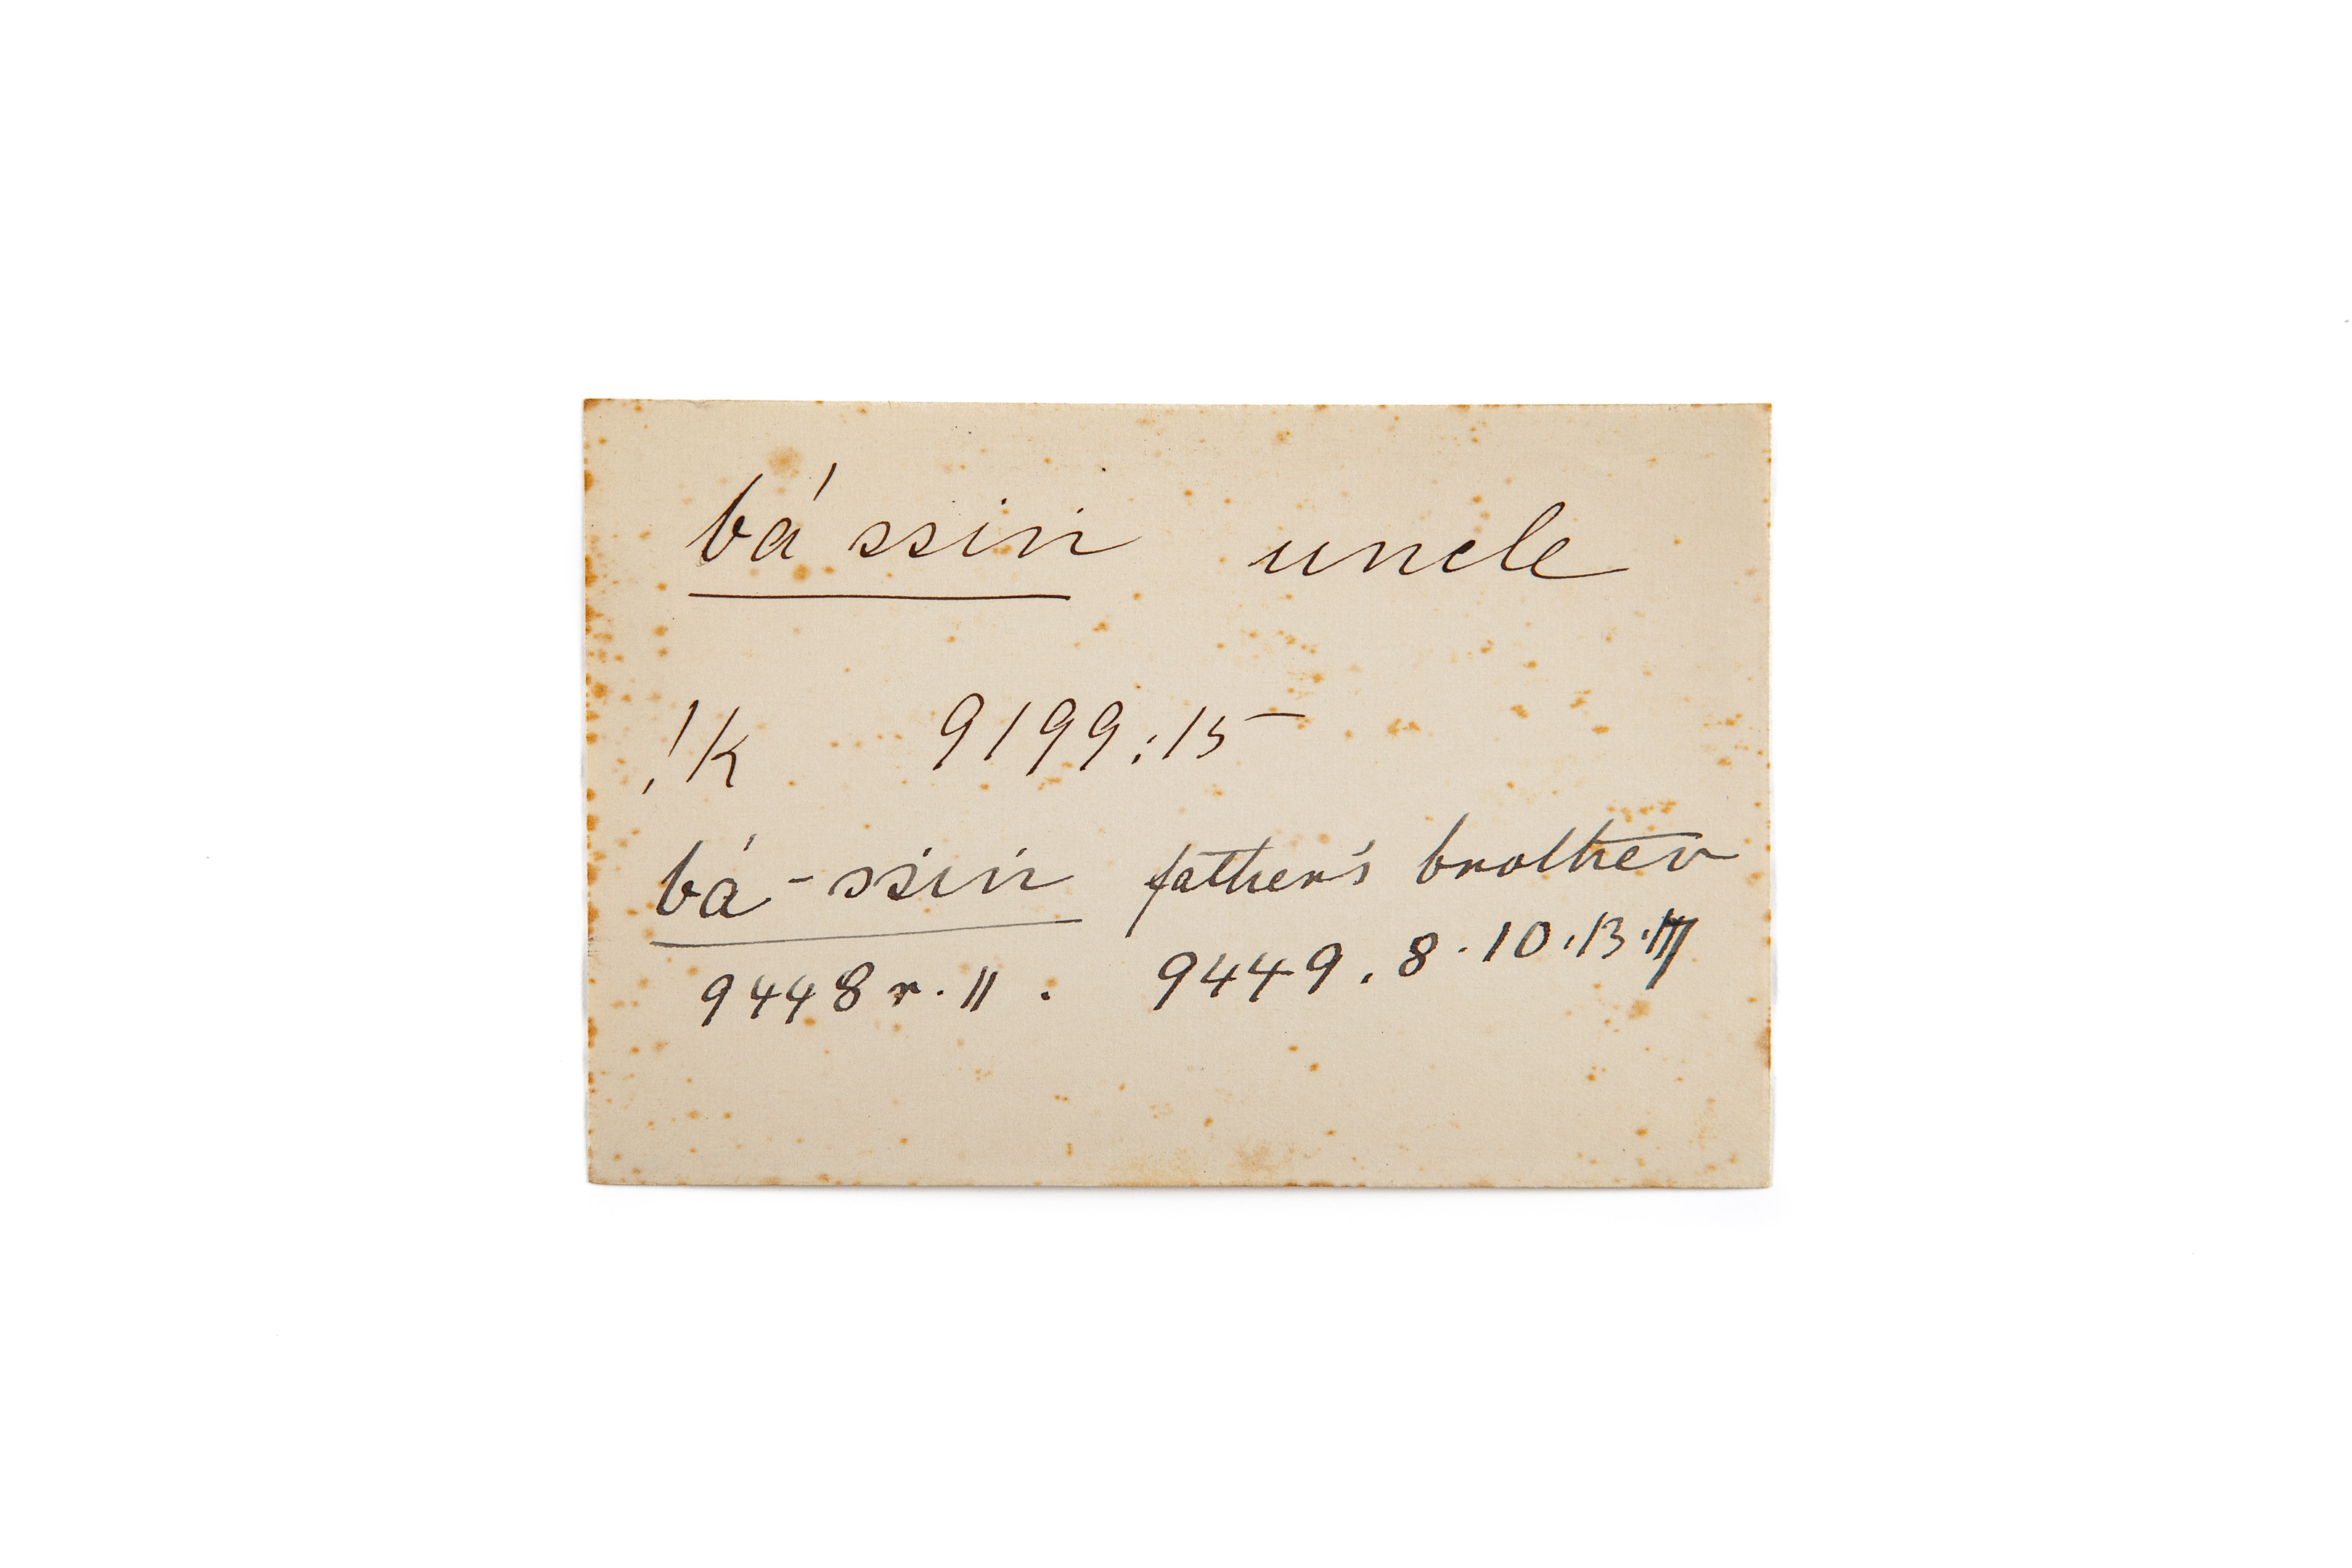 bá ssin uncle
!k 9199:15
bá-ssin father's brother
9448 r. 11. 9449. 8. 10. 13.